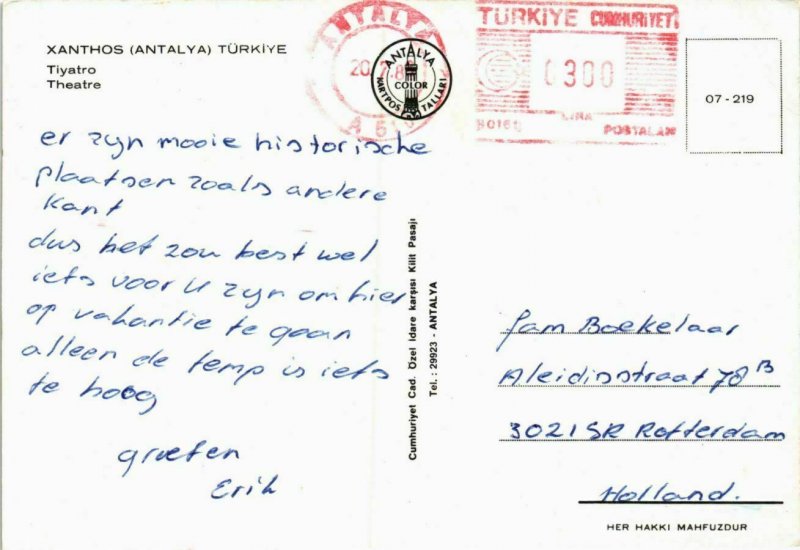 XANTHOS (ANTALYA) TÜRKİYE
Tiyatro
Theatre
er zyn mooie historische
plaatsen zoals andere
kant
dus het zou best wel
iets voor U zyn om hier
op vakantie te gaan
alleen de temp is iets
te hoog
groeten
Erik
ANTALYA
ANTALYA
COLOR
KARTPOSTALLARI
TÜRKİYE CUMHURİYETİ
0300
LİRA
POSTALARI
07 - 219
Cumhuriyet Cad. Özel İdare karşısı Kilit Pasajı
Tel.: 29923 - ANTALYA
Boekelaar
Aleidisstraat 78 B
3021SR Rotterdam
Holland.
HER HAKKI MAHFUZDUR